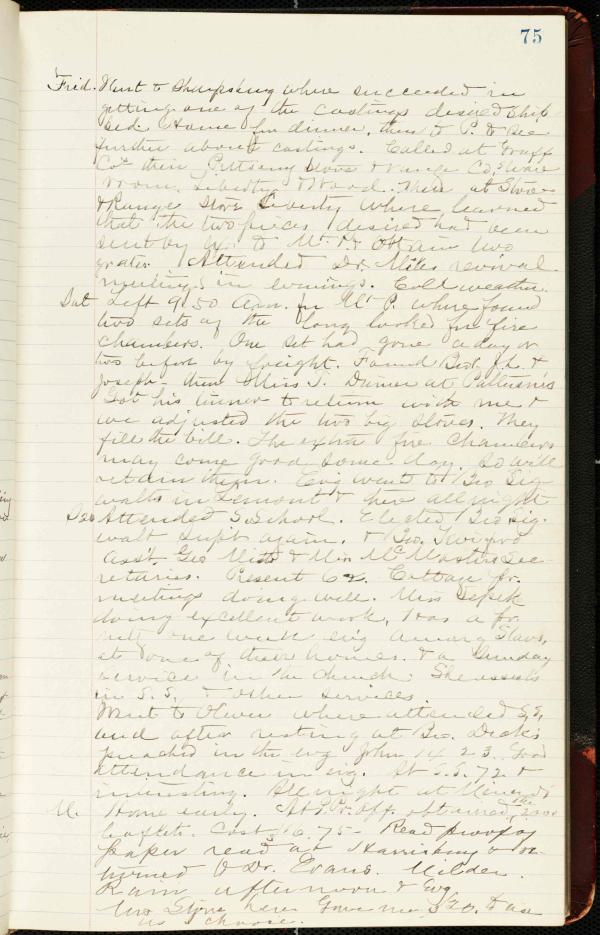 75
Frid. Went to Sharpsburg where succeeded in
getting one of the castings desired ship
ped. Home for dinner, then to P. to see
further about castings. Called at Graff
Cos then Pittsburg Stove & Range Co, Ware
room, Liberty & Wood. Then at Stove
& Range Store Liberty where learned
that the two pieces desired had been
sent by to Mt. P. Obtain two
grates. Attended Dr. Miles revival
meetings in evenings. Cold weather.
Sat Left 9.50 A.m. for Mt P. where found
two sets of the long looked for fire
chambers. One set had gone a day or
two before by freight. Found Bert, J.L. &
Joseph - then Miss J. Dinner at Patterson's
Got his tinner to return with me &
we adjusted the two big stoves. They
fill the bill. The extra fire chambers
may come good some day. So will
retain them. Evg went to Geo Sig
walts in Lemont & there all night
Attended S. School. Elected Geo Sig.
walt Supt again, & Geo.
Asst. Geo & Miss McMasters Sec-
retaries. Present 62. Cottage Pr.
meetings doing well. Miss
doing excellent work, Has a pr.
one week evg among Slavs,
at one of their homes. & a Sunday
service in the church. She assists
in S.S. & other services
Went to Oliver where attended S.S,
and after resting at Geo. Dicks
preached in the evg John 14.23. Good
attendance in evg. At S.S. 72 &
interesting. All night at
M. Home early. At P. off. obtained the 2000
leaflets. Cost $6.75 - Read proof of
paper read at Harrisburg & re
turned to Dr. Evans. Milder.
Rain afternoon & Evg
Mrs Stone here Gave me $20. to use
as choose.